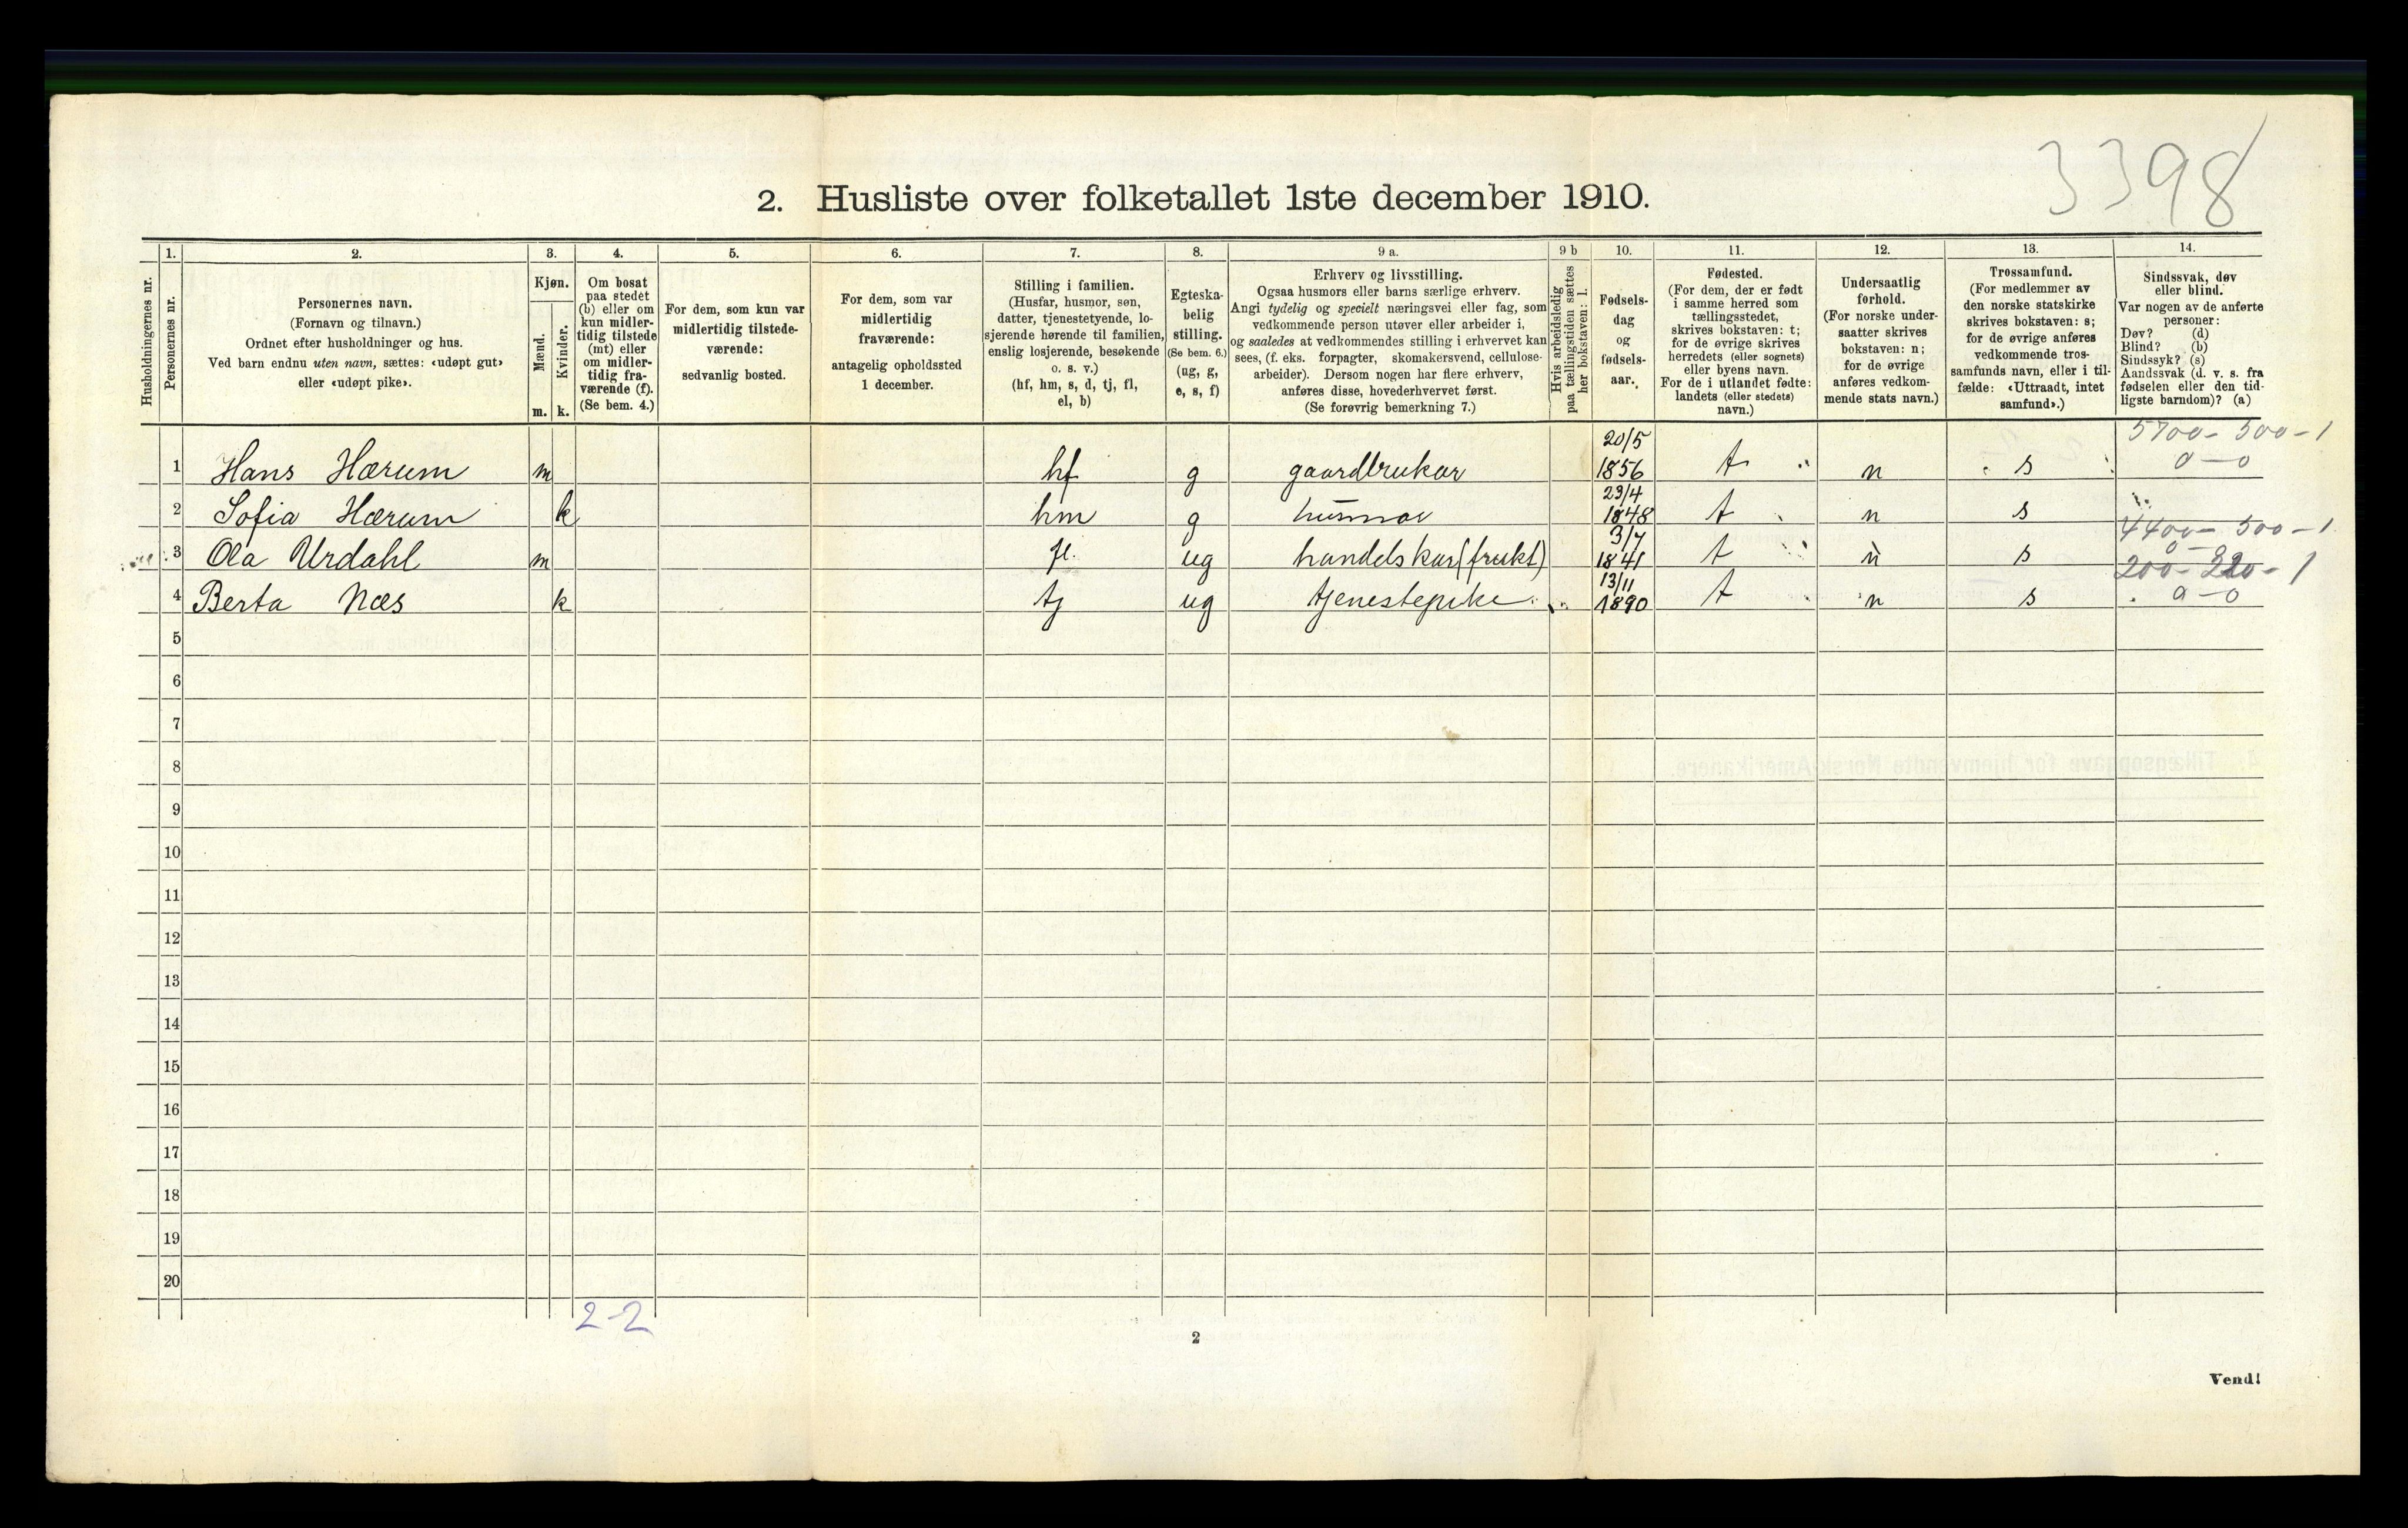 3398
2. Husliste over folketallet 1ste december 1910.
Husholdningernes nr.
1.
Personernes nr.
2.
Personernes navn.
(Fornavn og tilnavn.)
Ordnet efter husholdninger og hus.
Ved barn endnu uten navn, sættes: «udøpt gut»
eller «udøpt pike».
3.
Kjøn.
Mænd.
Kvinder.
m. k.
4.
Om bosat
paa stedet
(b) eller om
kun midler-
tidig tilstede
(mt) eller
om midler-
tidig fra-
værende (f).
(Se bem. 4.)
5.
For dem, som kun var
midlertidig tilstede-
værende:
sedvanlig bosted.
6.
For dem, som var
midlertidig
fraværende:
antagelig opholdssted
1 december.
7.
Stilling i familien.
(Husfar, husmor, søn,
datter, tjenestetyende, lo-
sjerende hørende til familien,
enslig losjerende, besøkende
o. s. v.)
(hf, hm, s, d, tj, fl,
el, b)
8.
Egteska-
belig
stilling.
(Se bem. 6.)
(ug, g,
e, s, f)
9 a.
Erhverv og livsstilling.
Ogsaa husmors eller barns særlige erhverv.
Angi tydelig og specielt næringsvei eller fag, som
vedkommende person utøver eller arbeider i,
og saaledes at vedkommendes stilling i erhvervet kan
sees, (f. eks. forpagter, skomakersvend, cellulose-
arbeider). Dersom nogen har flere erhverv,
anføres disse, hovederhvervet først.
(Se forøvrig bemerkning 7.)
9 b
Hvis arbeidsledig
paa tællingstiden sættes
her bokstaven: l.
10.
Fødsels-
dag
og
fødsels-
aar.
11.
Fødested.
(For dem, der er født
i samme herred som
tællingsstedet,
skrives bokstaven: t;
for de øvrige skrives
herredets (eller sognets)
eller byens navn.
For de i utlandet fødte:
landets (eller stedets)
navn.)
12.
Undersaatlig
forhold.
(For norske under-
saatter skrives
bokstaven: n;
for de øvrige
anføres vedkom-
mende stats navn.)
13.
Trossamfund.
(For medlemmer av
den norske statskirke
skrives bokstaven: s;
for de øvrige anføres
vedkommende tros-
samfunds navn, eller i til-
fælde: «Uttraadt, intet
samfund».)
14.
Sindssvak, døv
eller blind.
Var nogen av de anførte
personer:
Døv? (d)
Blind? (b)
Sindssyk? (s)
Aandssvak (d. v. s. fra
fødselen eller den tid-
ligste barndom)? (a)
5700 - 500 - 1
1 Hans Hærum m hf g gaardbruker 20/5 1856 t n s 0 - 0
2 Sofia Hærum k hm g husmor 23/4 1848 t n s
4400 - 500 - 1
3 Ola Urdahl m fl. ug handelskar (frukt) 3/7 1841 t n s
200 - 320 - 1
4 Berta Næs k tj ug tjenestepike 13/11 1890 t n s 0 - 0
5
6
7
8
9
10
11
12
13
14
15
16
17
18
19
20
2-2
2
Vend!